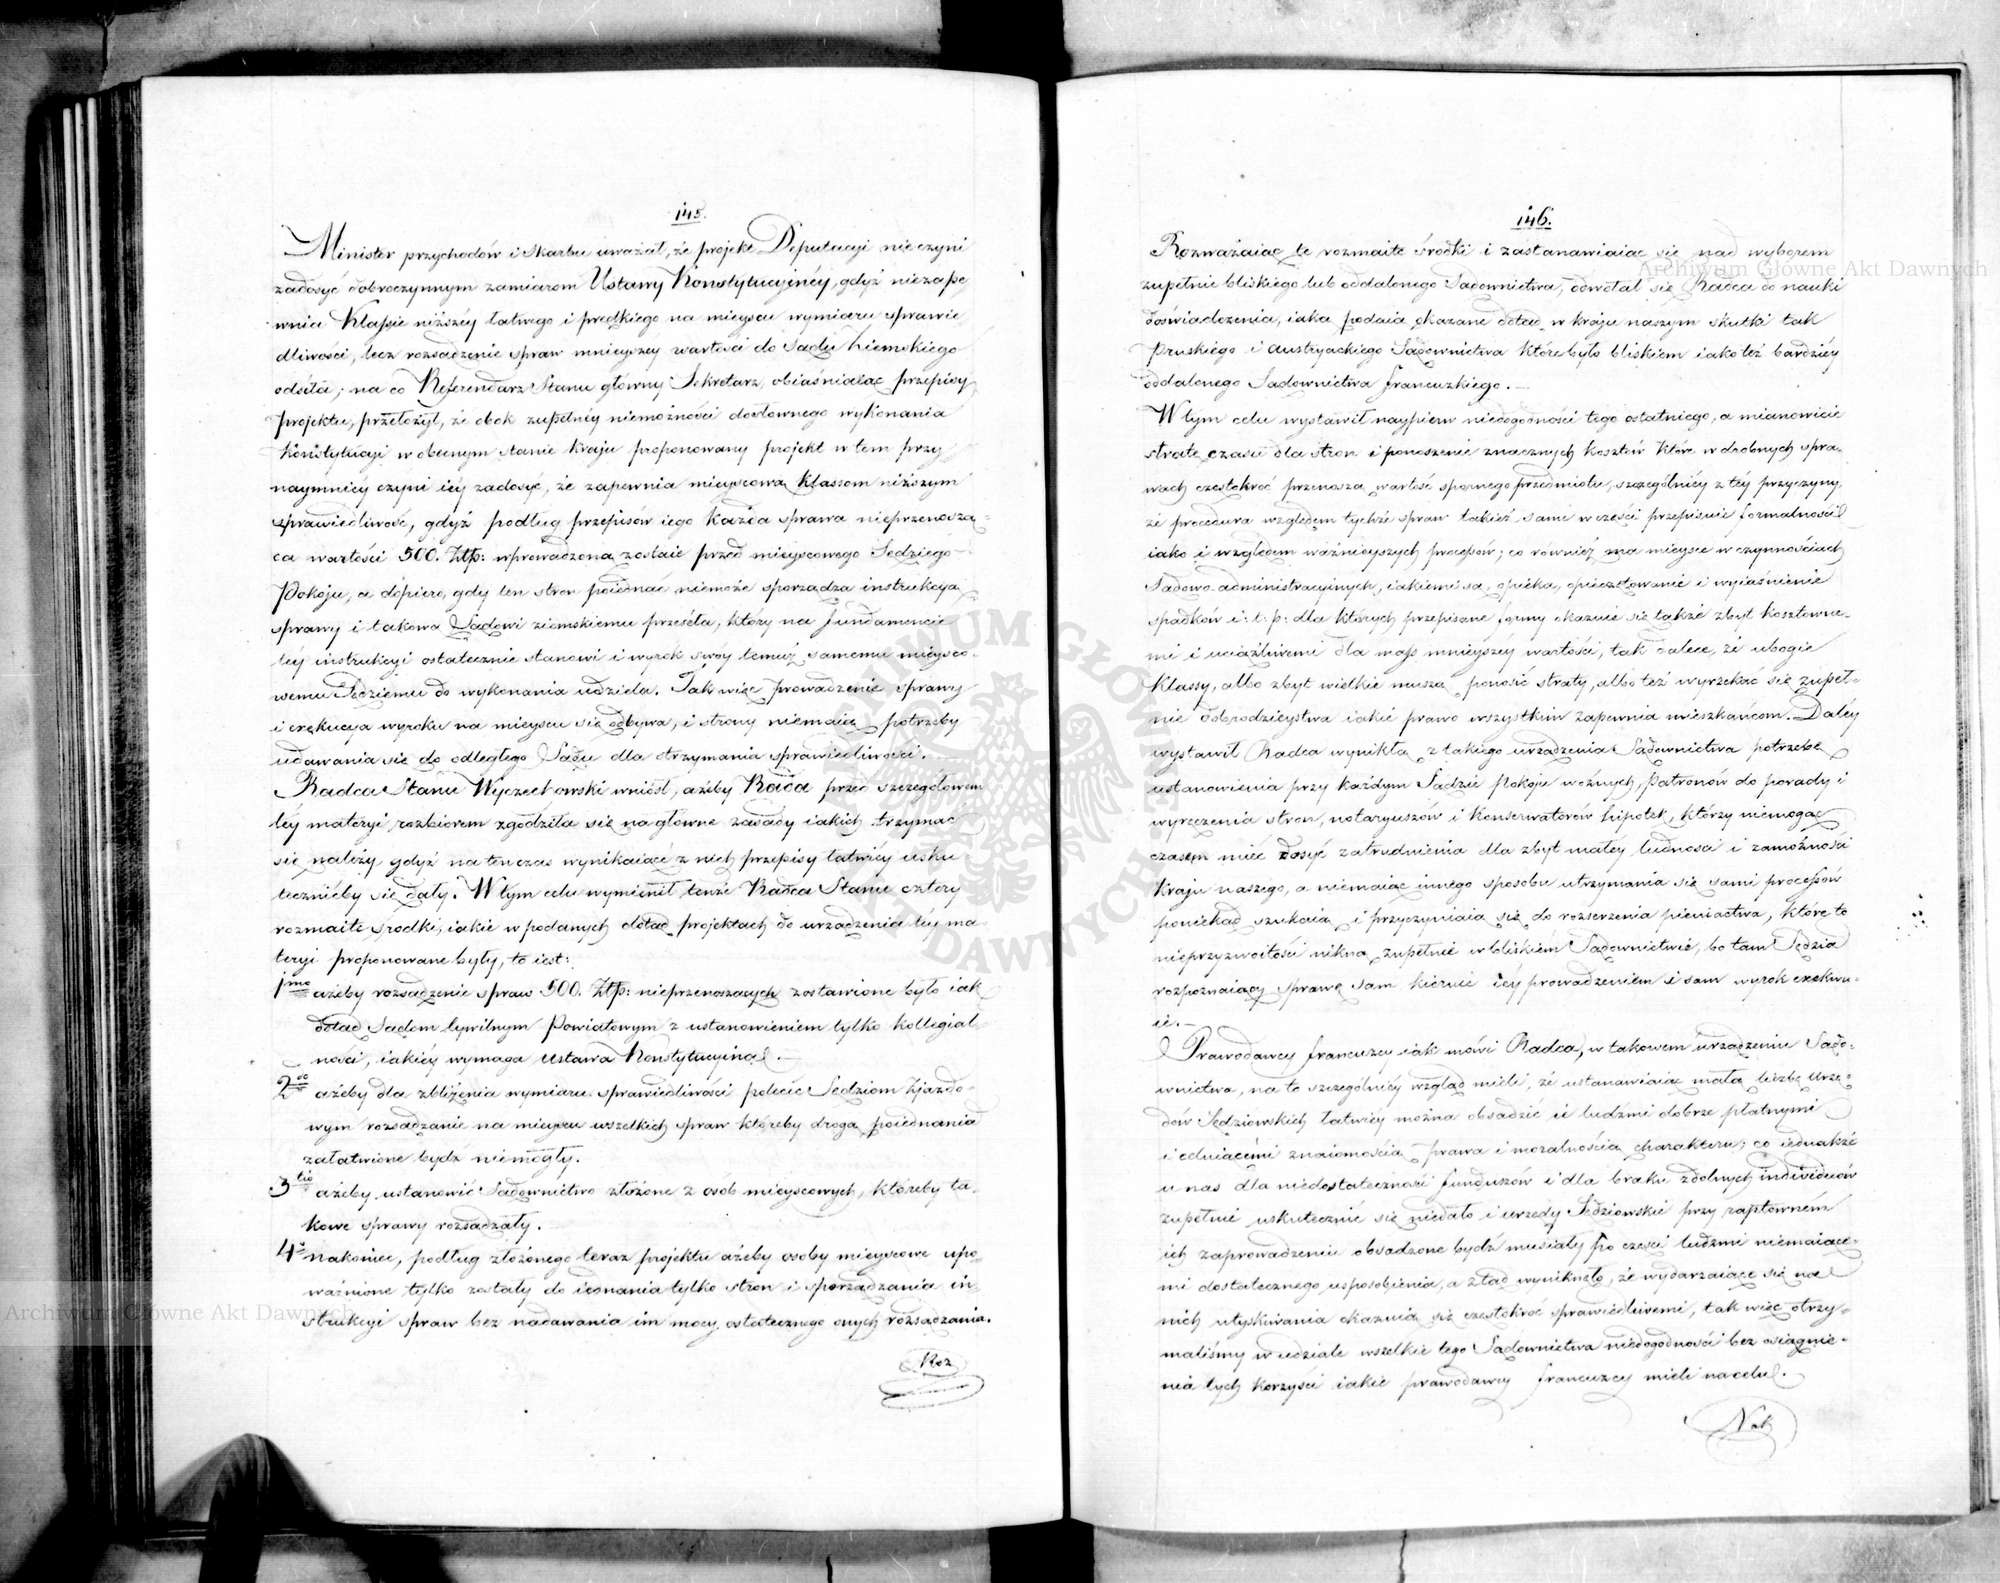 145.
Minister przychodów i Skarbu uważał, że projekt Deputacyi nie czyni
zadosyć dobroczynnym zamiarom Ustawy Konstytucyinéy, gdyż niezape
wnia Klassie niższéy łatwego i prędkiego na mieyscu wymiaru sprawie
dliwości, lecz rozsądzenie spraw mnieyszey wartości do Sądu Ziemskiego
odséła; na co Referendarz Stanu główny Sekretarz obiaśniaiąc przepisy
projektu, przełożył, że obok zupełnéy niemożności dosłownego wykonania
Konstytucyi w obecnym stanie kraju proponowany projekt w tem przy
naymniéy czyni iéy zadosyć, że zapewnia mieyscową Klassom niższym
sprawiedliwość, gdyż podług przepisów iego każda sprawa nieprzenoszą-
ca wartości 500. Złp: wprowadzona zostaie przed mieyscowego Sędziego
Pokoju, a dopiero, gdy ten stron poiednać niemoże sporządza instrukcyą
sprawy i takową Sądowi ziemskiemu prześéła, który na fundamencie
téy instrukcyi ostatecznie stanowi i wyrok swóy temuż samemu mieysco-
wemu Sędziemu do wykonania udziela. Tak więc prowadzenie sprawy
i exekucya wyroku na mieyscu się odbywa, i strony niemaią potrzeby
udawania się do odległego Sądu dla otrzymania sprawiedliwości.
Radca Stanu Wyczechowski wniósł, ażeby Rada przed szczegółowem
téy materyi rozbiorem zgodziła się na główne zasady iakich trzymać
się należy gdyż na tenczas wynikaiące z nich przepisy łatwiéy usku
tecznićby się dały. W tym celu wymienił tenże Radca Stanu cztery
rozmaite środki, iakie w podanych dotąd projektach do urządzenia téy ma
teryi proponowane były, to iest:
1mo ażeby rozsądzenie spraw 500. Złp: nieprzenoszących zostawione było iak
dotąd Sądom Cywilnym Powiatowym z ustanowieniem tylko kollegial
ności, iakiéy wymaga Ustawa Konstytucyina.
2do ażeby dla zbliżenia wymiaru sprawiedliwości polecić Sędziom Zjazdo-
wym rozsądzanie na mieyscu wszelkich spraw któreby drogą poiednania
załatwione bydź niemogły.
3tio ażeby ustanowić Sądownictwo złożone z osób mieyscowych, któreby ta-
kowe sprawy rozsądzały.
4o nakoniec, podług złożonego teraz projektu ażeby osoby mieyscowe upo-
ważnione tylko zostały do iednania tylko stron i sporządzania in-
strukcyi spraw bez nadawania im mocy ostatecznego onych rozsądzania.
Roz
146.
Rozważaiąc te rozmaite środki i zastanawiaiąc się nad wyborem
zupełnie bliskiego lub oddalonego Sądownictwa, odwołał się Radca do nauki
doświadczenia, iaką podaią okazane dotąd w kraju naszym skutki tak
Pruskiego i Austryackiego Sądownictwa które było bliskiem iako też bardziéy
oddalonego Sądownictwa francuzkiego.
W tym celu wystawił naypierw niedogodności tego ostatniego, a mianowicie
stratę czasu dla stron i ponoszenie znacznych kosztów które w drobnych spra-
wach częstokroć przenoszą wartość spornego przedmiotu, szczególniéy z téy przyczyny,
że procedura względem tychże spraw takież same w części przepisuie formalności
iako i względem ważnieyszych processów; co również ma mieysce w czynnościach
Sądowo-administracyinych, iakiemi są, opieka, opieczętowanie i wyiaśnienie
spadków i: t: p: dla których przepisane formy okazuią się także zbyt kosztowne-
mi i uciążliwemi dla mass mnieyszéy wartości, tak dalece, że ubogie
Klassy, albo zbyt wielkie muszą ponosić straty, albo też wyrzekać się zupeł-
nie dobrodzieystwa iakie prawo wszystkim zapewnia mieszkańcom. Daléy
wystawił Radca wynikłą z takiego urządzenia Sądownictwa potrzebę
ustanowienia przy każdym Sądzie Pokoju woźnych, Patronów do porady i
wyręczenia stron, notaryuszów i konserwatorów hipotek, którzy niemogąc
czasem mieć dosyć zatrudnienia dla zbyt małéy ludności i zamożności
kraju naszego, a niemaiąc innego sposobu utrzymania się sami processów
poniekąd szukaią i przyczyniaią się do rozszerzenia pieniactwa, które to
nieprzyzwoitości nikną zupełnie w bliskiém Sądownictwie, bo tam Sędzia
rozpoznaiący sprawę sam kieruie iéy prowadzeniem i sam wyrok exekwu-
ie.
Prawodawcy francuzcy iak mówi Radca, w takowem urządzeniu Sądo-
wnictwa, na to szczególniéy wzgląd mieli, że ustanawiaiąc małą liczbę Urzę-
dów Sędziowskich łatwiéy można obsadzić ie ludźmi dobrze płatnymi
i celuiącemi znaiomością prawa i moralnością charakteru; co iednakże
u nas dla niedostateczności funduszów i dla braku zdolnych individuów
zupełnie uskutecznić się niedało i urzędy Sędziowskie przy raptowném
ich zaprowadzeniu obsadzone bydź musiały po części ludźmi niemaiące-
mi dostatecznego usposobienia, a ztąd wyniknęło, że wydarzaiące się na
nich utyskiwania okazuią się częstokroć sprawiedliwemi, tak więc otrzy-
maliśmy w udziale wszelkie tego Sądownictwa niedogodności bez osiągnie-
nia tych korzyści iakie prawodawcy francuzcy mieli na celu.
Nak
Archiwum Główne Akt Dawnych
Archiwum Główne Akt Dawnych
ARCHIWUM GŁÓWNE AKT DAWNYCH